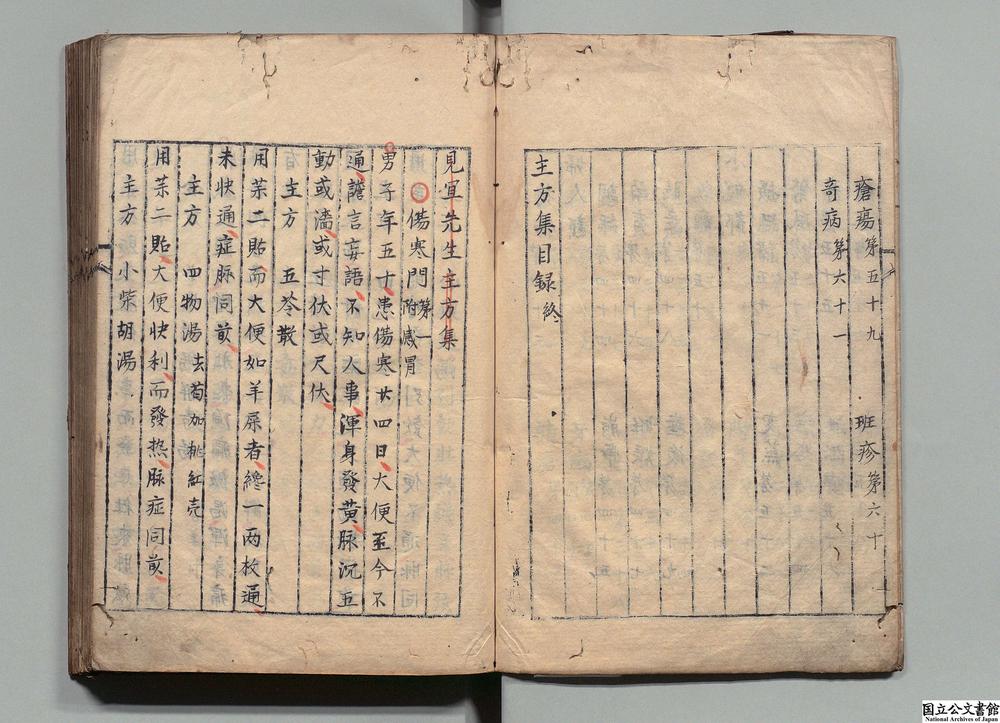 瘡瘍第五十九 班疹第六十
奇病第六十一
主方集目録終
見宜先生主方集
傷寒門第一附感冒
男子年五十患傷寒廿四日大便至今不
通譫言妄語不知人事渾身發黄脉沉五
動或濇或寸伏或尺伏
主方 五苓散
用茱二貼而大便如羊屎者纔一両枚通
未快通症脉同前
主方 四物湯去芍加桃紅壳
用茱二貼大便快利而發热脉症同前
主方 小柴胡湯
国立公文書館
National Archives of Japan